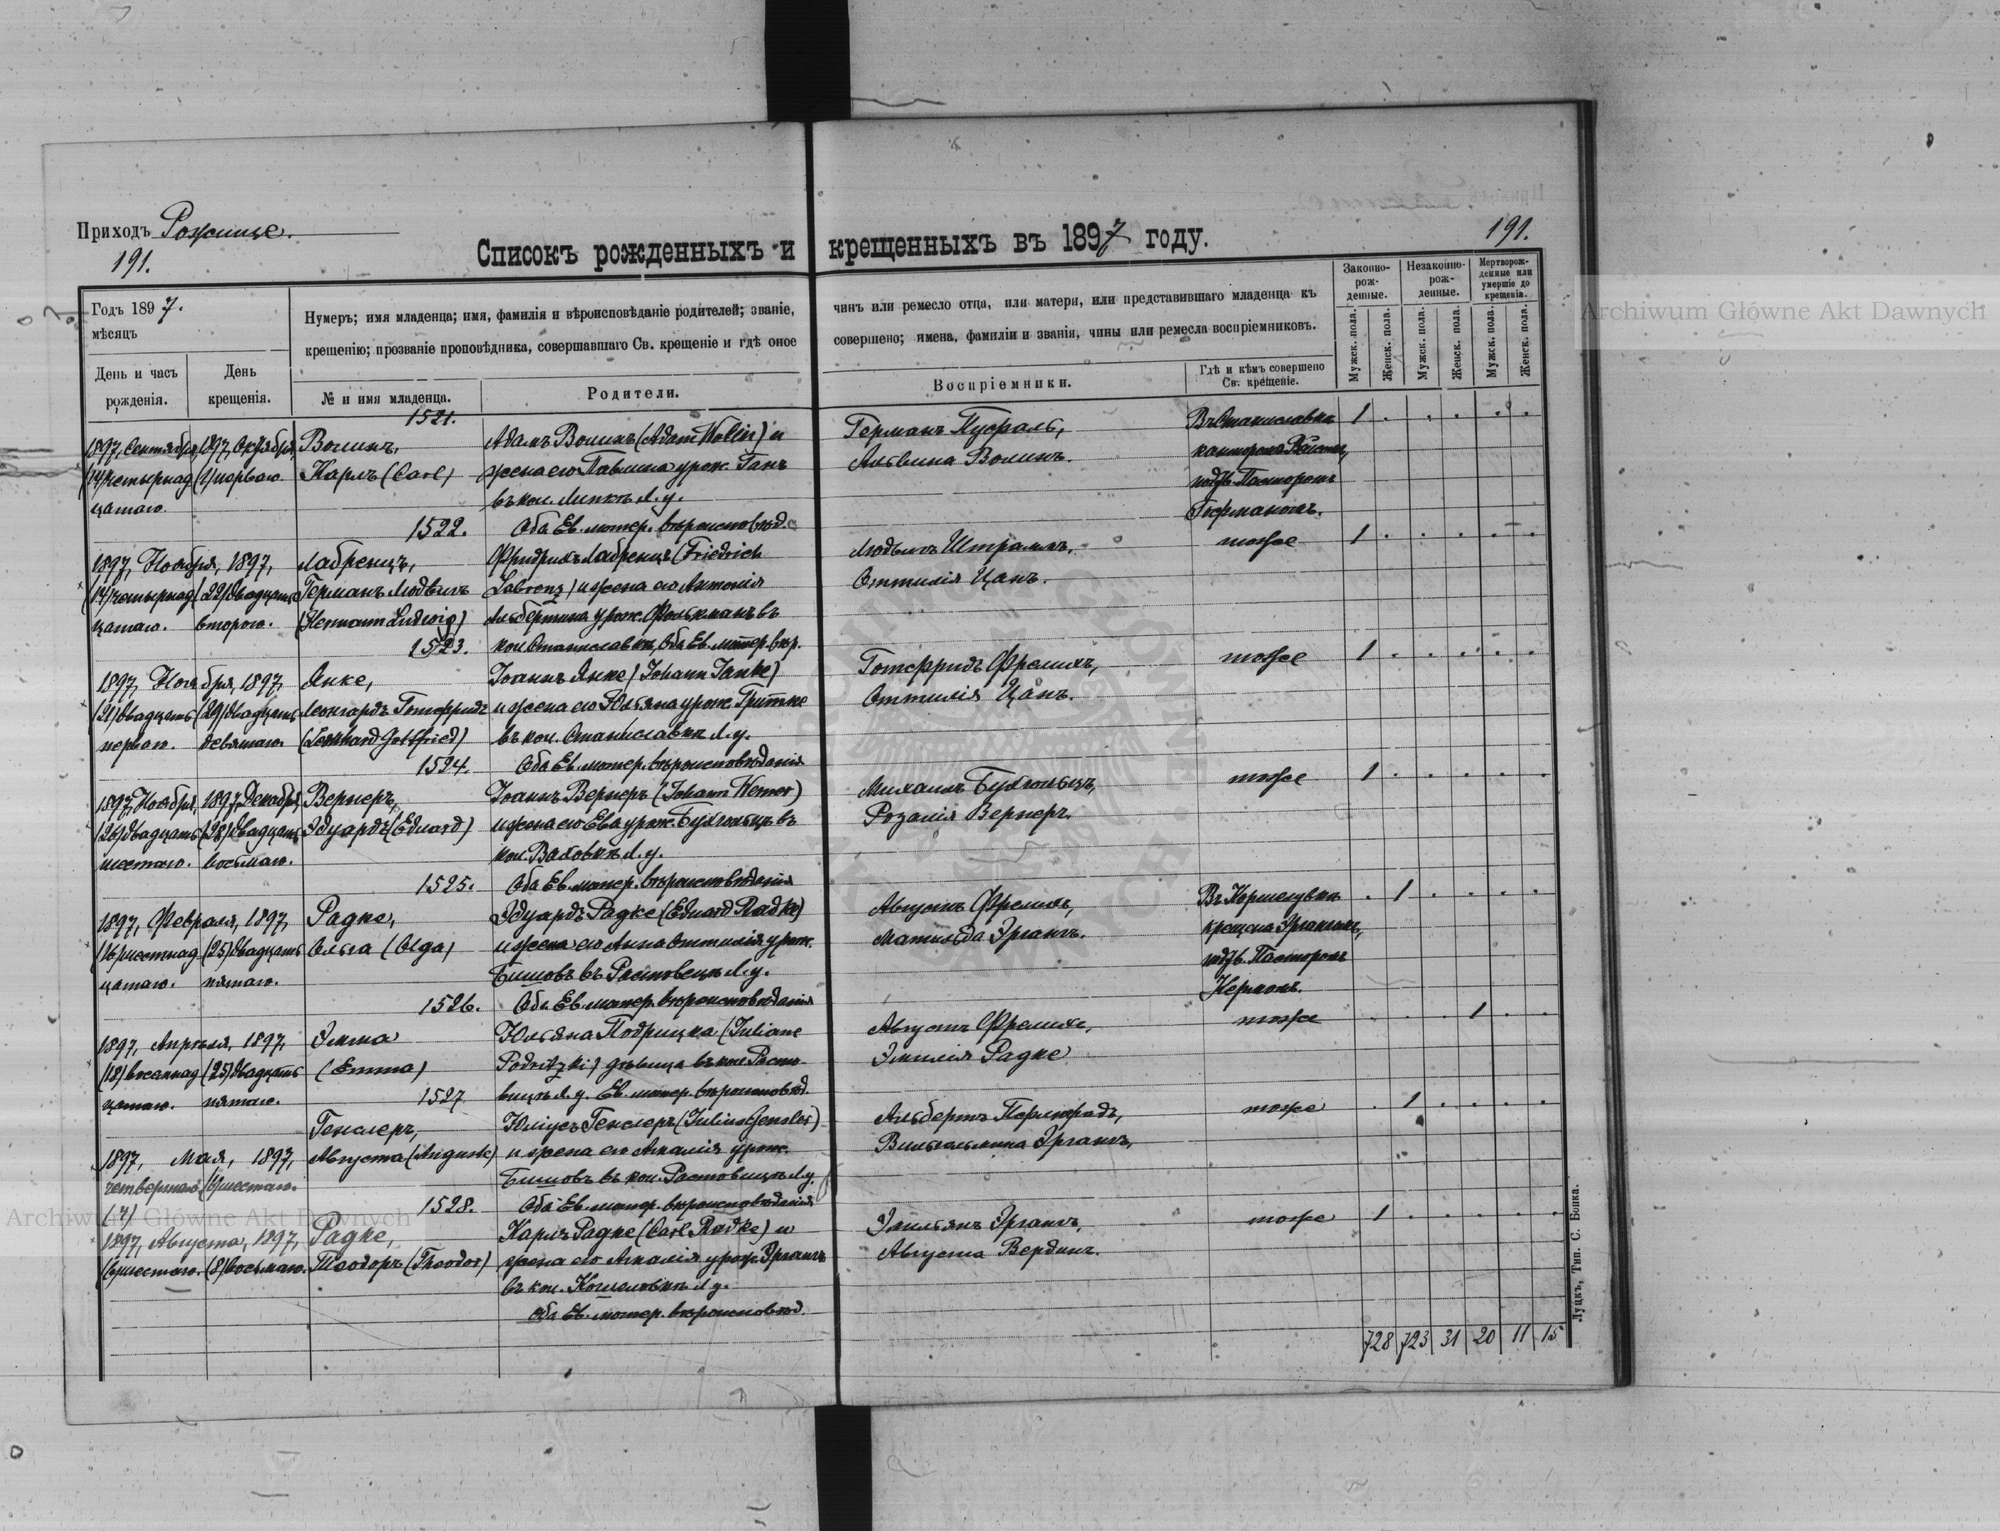 Приходъ Рожище.
191.
Списокъ рожденныхъ и крещенныхъ въ 1897 году.
191.
Годъ 1897.
мѣсяцъ
День и часъ рожденія.
День крещенія.
Нумеръ; имя младенца; имя, фамилія и вѣроисповѣданіе родителей; званіе, чинъ или ремесло отца, или матери, или представившаго младенца къ
крещенію; прозваніе проповѣдника, совершавшаго Св. крещеніе и гдѣ оное совершено; имена, фамиліи и званія, чины или ремесла воспріемниковъ.
№ и имя младенца.
Родители.
Воспріемники.
Гдѣ и кѣмъ совершено Св. крещеніе.
Законно-рож-денные.
Незаконно-рож-денные.
Мертворож-денные или умершіе до крещенія.
Мужск. пола.
Женск. пола.
Мужск. пола.
Женск. пола.
Мужск. пола.
Женск. пола.
1521.
1897, Сентября, 1897, Октября, Волинъ, Адамъ Волинъ (Adam Wollin) и Германъ Пуфаль, Въ Станиславкѣ 1
(14) четырнад (1) перваго. Карлъ (Carl) жена его Павлина урож. Ганъ Альвина Волинъ. канторомъ
цатаго. въ кол. Липкѣ Л. у. подтв. Пасторомъ
1522. Оба Ев. лютер. вѣроисповѣд. Германомъ.
1897, Ноября, 1897, Лабренцъ, Фридрихъ Лабренцъ (Friedrich Людвигъ Штраммъ, тоже 1
(14) четырнад (22) двадцать Германъ Людвигъ Labrenz) и жена его Антонія Оттилія Цанъ.
цатаго. второго. (Hermann Ludwig) Альбертина урож. Фолькманъ въ
1523. кол. Станиславкѣ, Оба Ев. лютер. вѣр.
1897, Ноября, 1897, Янке, Іоаннъ Янке (Johann Janke) Готфридъ Фрелихъ, тоже 1
(21) двадцать (29) двадцать Леонгардъ Готфридъ и жена его Юльяна урож. Гритке Оттилія Цанъ.
перваго. девятаго. (Leonhard Gottfried) въ кол. Станиславкѣ Л. у.
1524. Оба Ев. лютер. вѣроисповѣданія
1897, Ноября, 1897, Декабря, Вернеръ, Іоаннъ Вернеръ (Johann Werner) Михаилъ Бухгольцъ, тоже 1
(26) двадцать (28) двадцать Эдуардъ (Eduard) и жена его Ева урож. Бухгольцъ въ Розалія Вернеръ.
шестаго. восьмаго. кол. Л. у.
1525. Оба Ев. лютер. вѣроисповѣданія
1897, Февраля, 1897, Радке, Эдуардъ Радке (Eduard Radke) Августъ Фрелихъ, Въ 1
(16) шестнад (25) двадцать Ольга (Olga) и жена его Анна Оттилія урож. Матильда Эргангъ. крещена Эргангомъ,
цатаго. пятаго. Бишовъ въ Л. у. подтв. Пасторомъ
1526. Оба Ев. лютер. вѣроисповѣданія Керномъ.
1897, Апрѣля, 1897, Эмма Юльяна Подрицка (Juliane Августъ Фрелихъ, тоже 1
(18) восемнад (25) двадцать (Emma) Podritzki) дѣвица въ кол. Росто Эмилія Радке
цатаго. пятаго. вицѣ Л. у. Ев. лютер. вѣроисповѣд.
1527
Генслеръ, Юліусъ Генслеръ (Julius Gensler) Альбертъ тоже 1
1897, Мая, 1897, Августа (Auguste) и жена его Амалія урож. Вильгельмина Эргангъ,
четвертаго (6) шестаго. Бишовъ въ кол. Ростовицѣ Л. у.
(4) 1528. Оба Ев. лютер. вѣроисповѣданія
1897, Августа, 1897, Радке, Карлъ Радке (Carl Radke) и Эмильянъ Эргангъ, тоже 1
(6) шестаго. (8) восьмаго. Теодоръ (Theodor) жена его Амалія урож. Эргангъ Августа Вердинъ.
въ кол. Л. у.
Оба Ев. лютер. вѣроисповѣд.
728 723 31 20 11 15
Луцкъ, Тип. С. Бонка.
Archiwum Główne Akt Dawnych
Archiwum Główne Akt Dawnych